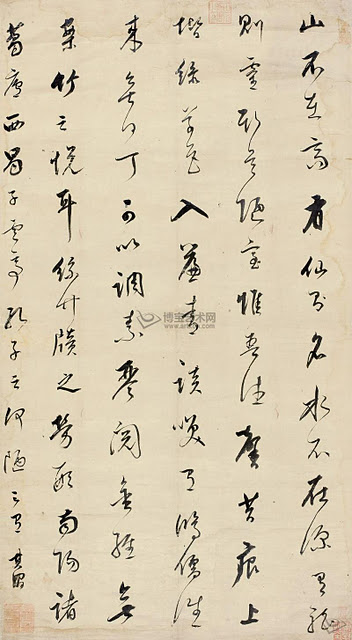 山不在高有仙則名水不在深有龍
則靈斯是陋室惟吾德馨苔痕上
堦綠草色入簾青談笑有鴻儒往
來無白丁可以調素琴閱金經無
案竹之悅耳絲竹牘之勞形南陽諸
葛廬西蜀子雲亭孔子云何陋之有 其昌
博宝艺术网